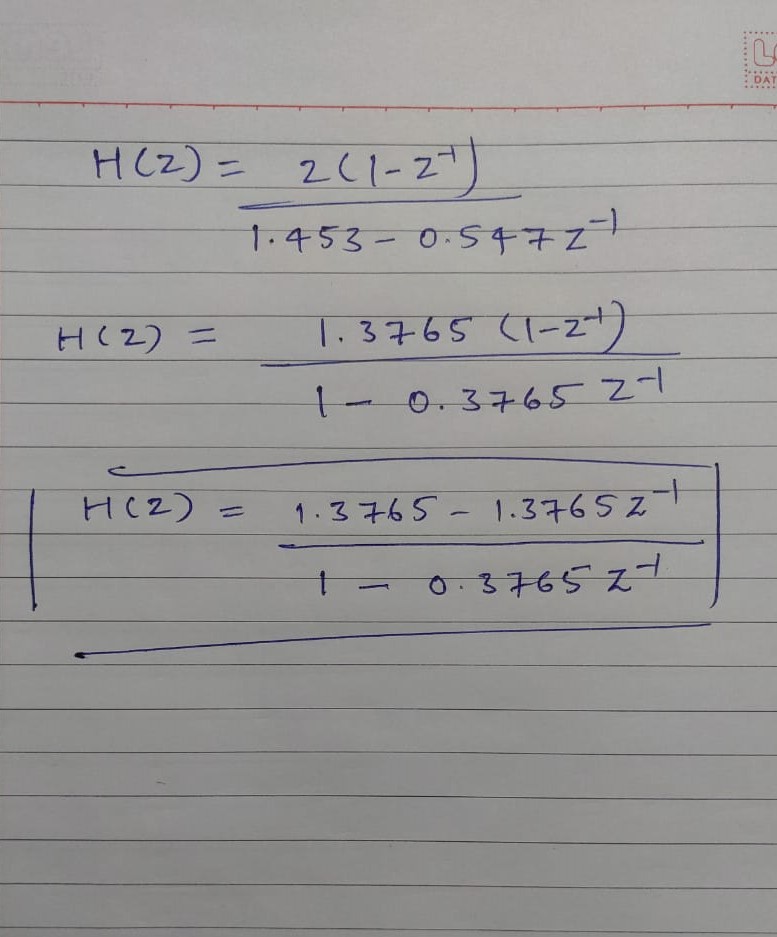 H(z) = 2(1-z⁻¹) / 1.453 - 0.547z⁻¹
H(z) = 1.3765 (1-z⁻¹) / 1 - 0.3765 z⁻¹
H(z) = 1.3765 - 1.3765z⁻¹ / 1 - 0.3765 z⁻¹